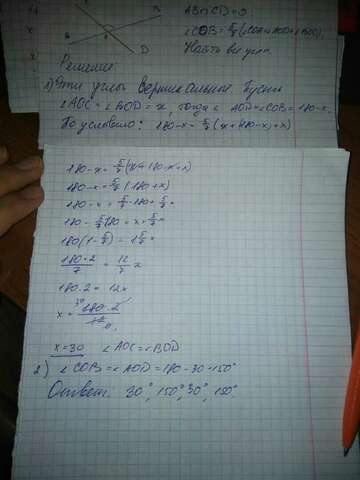 B
AB∩CD=O
A
D
∠COB=5/7(∠COA+∠AOD+∠BOD),
Найти все углы
Решение
1) Эти углы вертикальные. Пусть
∠AOC=∠BOD=x, тогда ∠AOD=∠COB=180-x.
По условию: 180-x=5/7(x+(180-x)+x)
180-x=5/7(x+180-x+x)
180-x=5/7(180+x)
180-x=5/7·180+5/7x
180-5/7·180=x+5/7x
180(1-5/7)=1 5/7x
180·2/7=12/7x
180·2=12x
x=180·2/12
x=30 ∠AOC=∠BOD
2) ∠COB=∠AOD=180-30=150°
Ответ: 30°, 150°, 30°, 150°